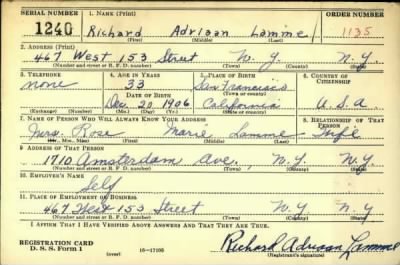 SERIAL NUMBER 1. NAME (Print) ORDER NUMBER
1240 Richard Adriaan Lamme 1135
(First) (Middle) (Last)
2. ADDRESS (Print)
467 West 153 Street N.Y. N.Y.
(Number and street or R. F. D. number) (Town) (County) (State)
3. TELEPHONE 4. AGE IN YEARS 5. PLACE OF BIRTH 6. COUNTRY OF CITIZENSHIP
none 33 San Francisco
DATE OF BIRTH (Town or county)
Dec. 20 1906 California U.S.A
(Exchange) (Number) (Mo.) (Day) (Yr.) (State or country)
7. NAME OF PERSON WHO WILL ALWAYS KNOW YOUR ADDRESS 8. RELATIONSHIP OF THAT PERSON
Mrs. Rose Marie Lamme Wife
(Mr., Mrs., Miss) (First) (Middle) (Last)
9. ADDRESS OF THAT PERSON
1710 Amsterdam Ave, N.Y. N.Y.
(Number and street or R. F. D. number) (Town) (County) (State)
10. EMPLOYER'S NAME
Self
11. PLACE OF EMPLOYMENT OR BUSINESS
467 West 153 Street N.Y N.Y
(Number and street or R. F. D. number) (Town) (County) (State)
I AFFIRM THAT I HAVE VERIFIED ABOVE ANSWERS AND THAT THEY ARE TRUE.
REGISTRATION CARD
D. S. S. FORM 1 (over) 16-17105 Richard Adriaan Lamme
(Registrant's signature)